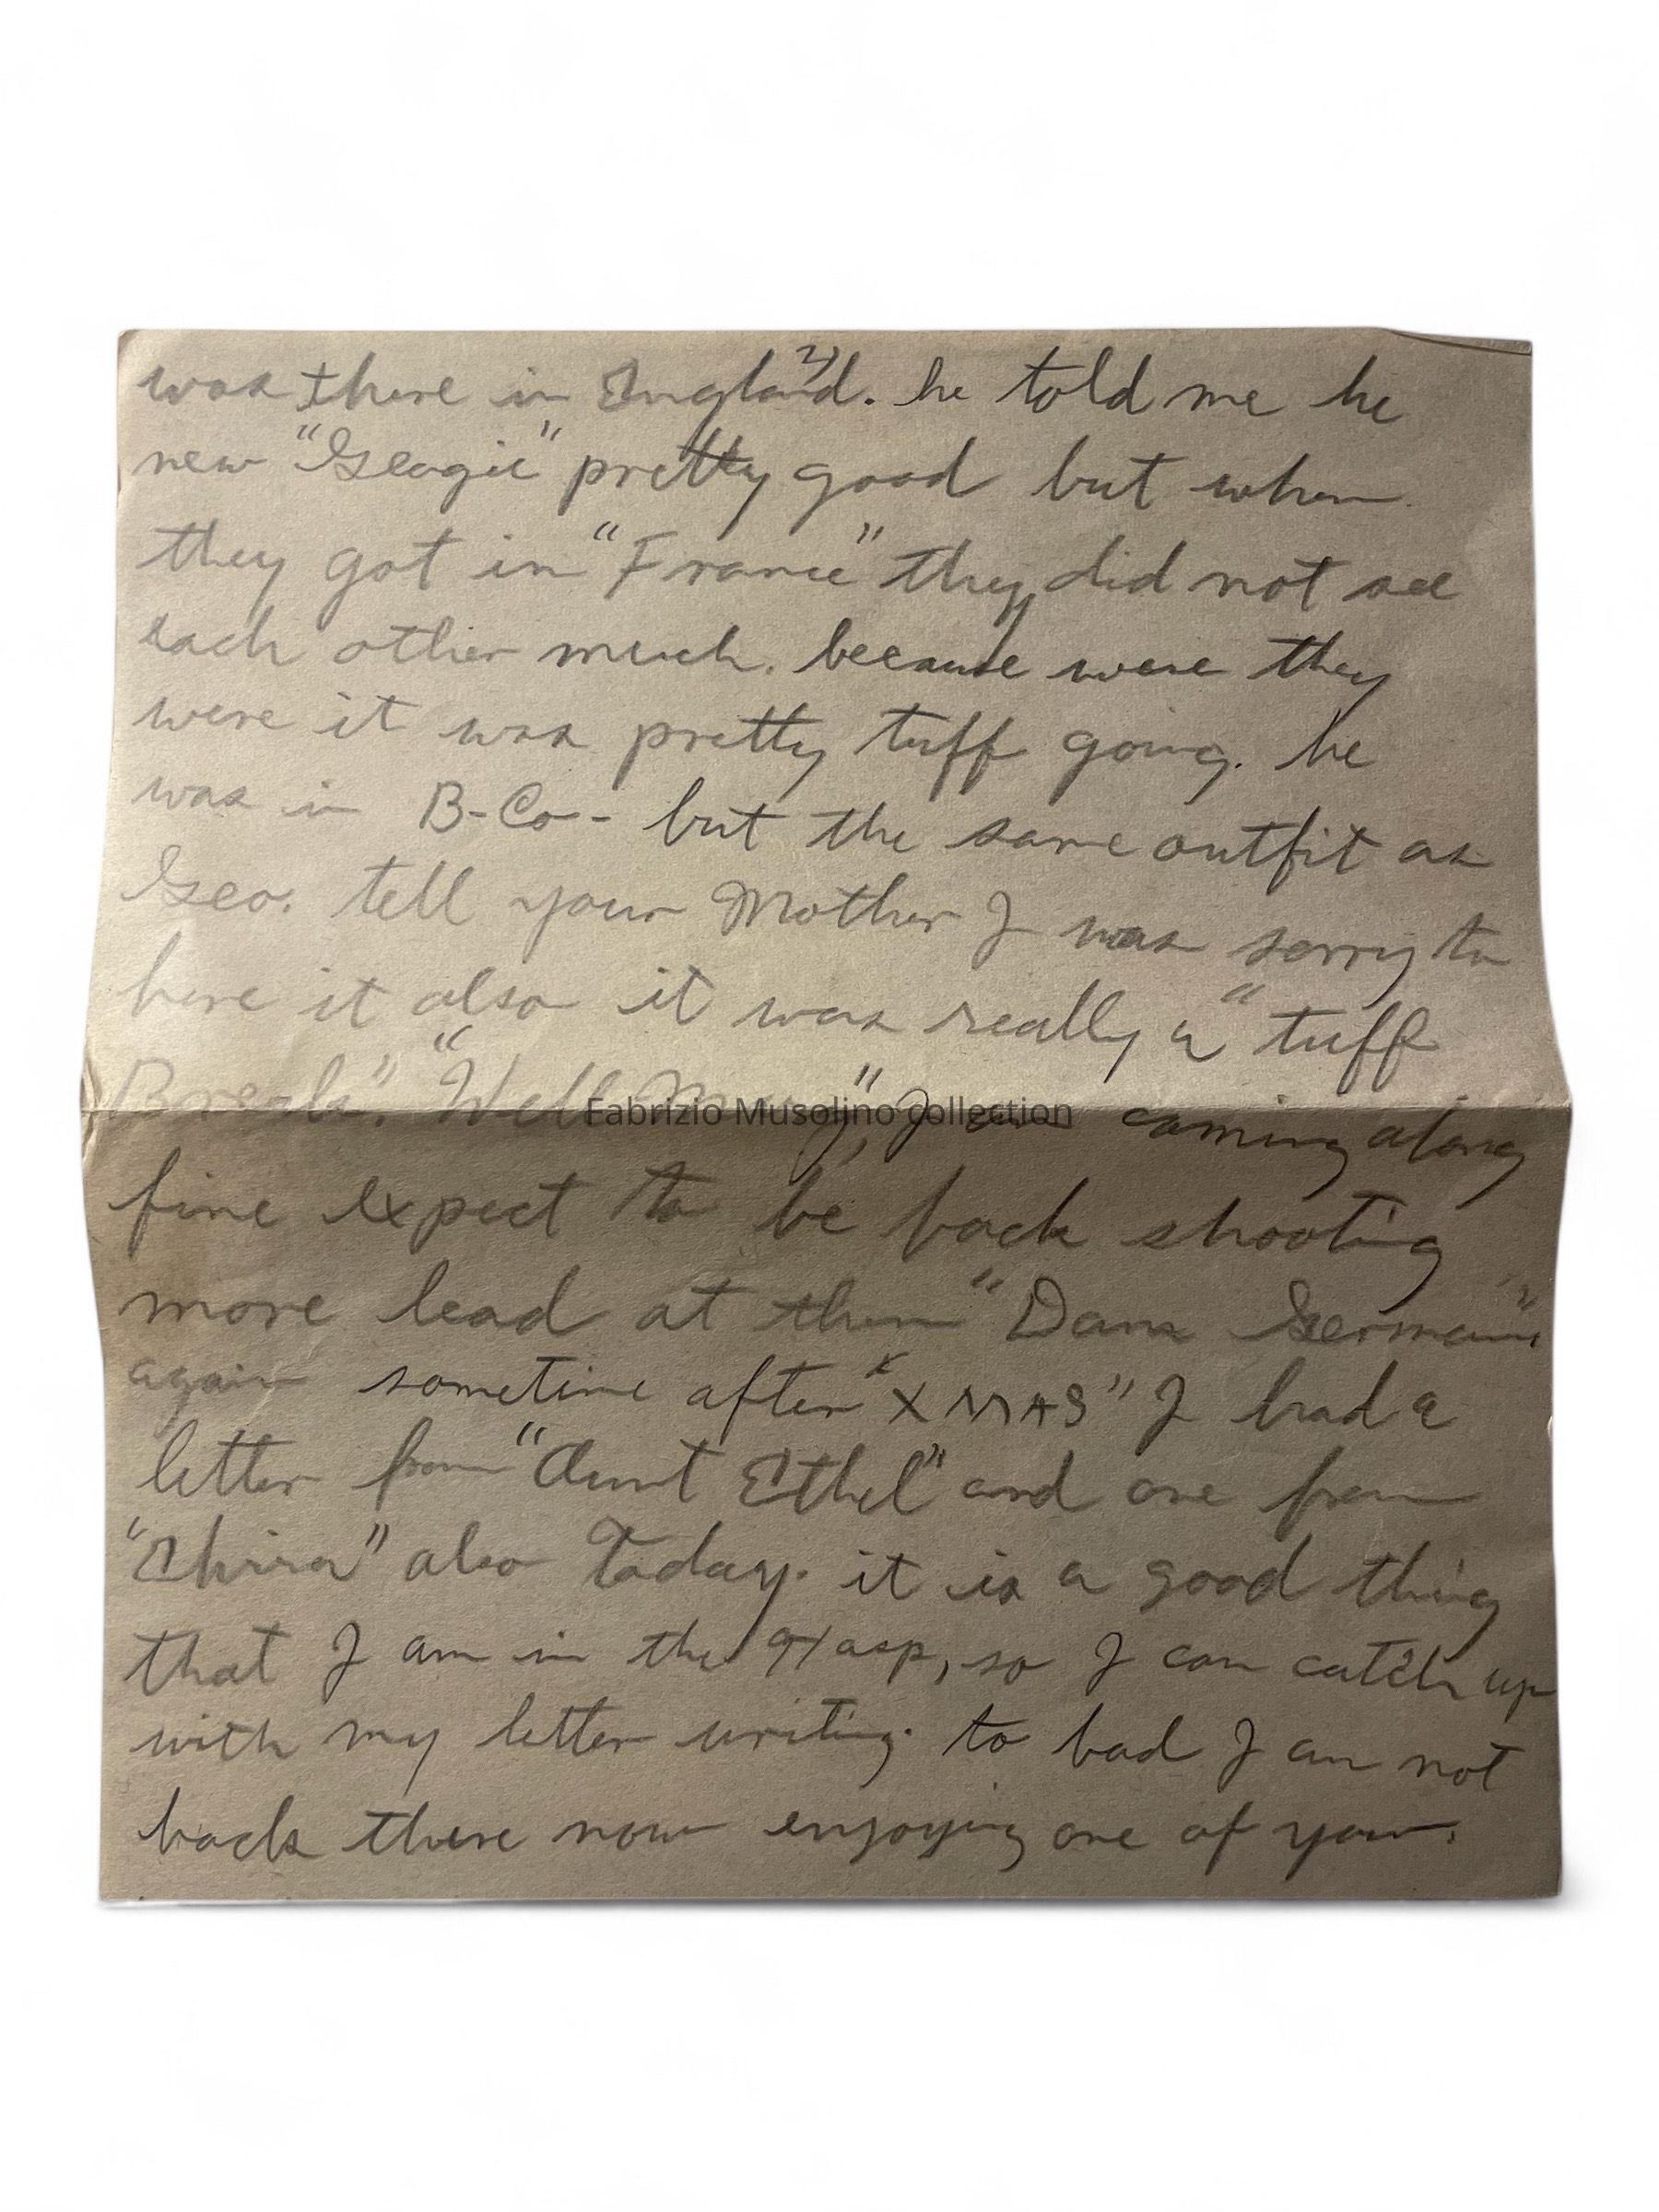 2)
was there in England. he told me he
new "Geogie" pretty good but when
they got in "France" they did not see
each other much. because were they
were it was pretty tuff going. he
was in B-Co- but the same outfit as
Geo. tell your Mother I was sorry to
here it also it was really a "tuff
Break". "Well " I am coming along
Fabrizio Musolino collection
fine expect to be back shooting
more lead at them "Dam Germans"
again sometime after "XMAS" I had a
letter from "Aunt Ethel" and one from
also Today. it is a good thing
that I am in the Hosp, so I can catch up
with my letter writing. to bad I am not
back there now enjoying one of your